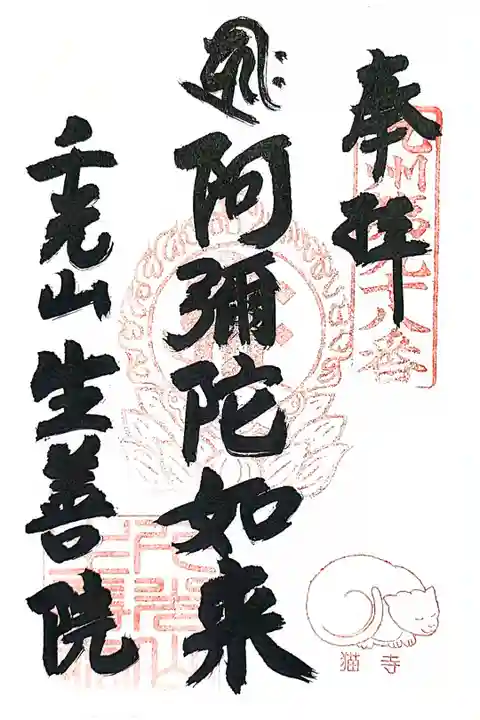 奉拝
九州第九十八番
阿彌陀如来
千光山 生善院
猫寺